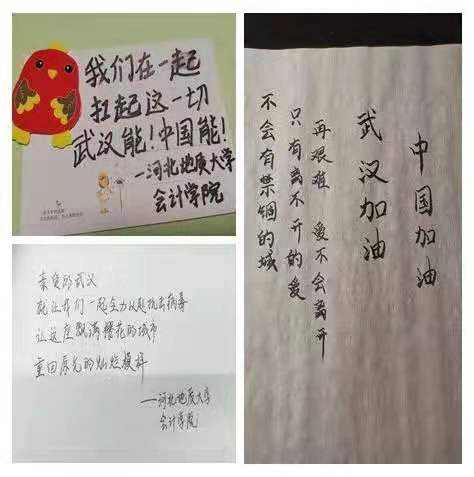 我们在一起
扛起这一切
武汉能!中国能!
—河北地质大学
会计学院
亲爱的武汉
就让我们一起全力以赴抗击病毒
让这座飘满樱花的城市
重回原先的灿烂模样
——河北地质大学
会计学院
中国加油
武汉加油
再艰难 爱不会离开
只有离不开的爱
不会有禁锢的城